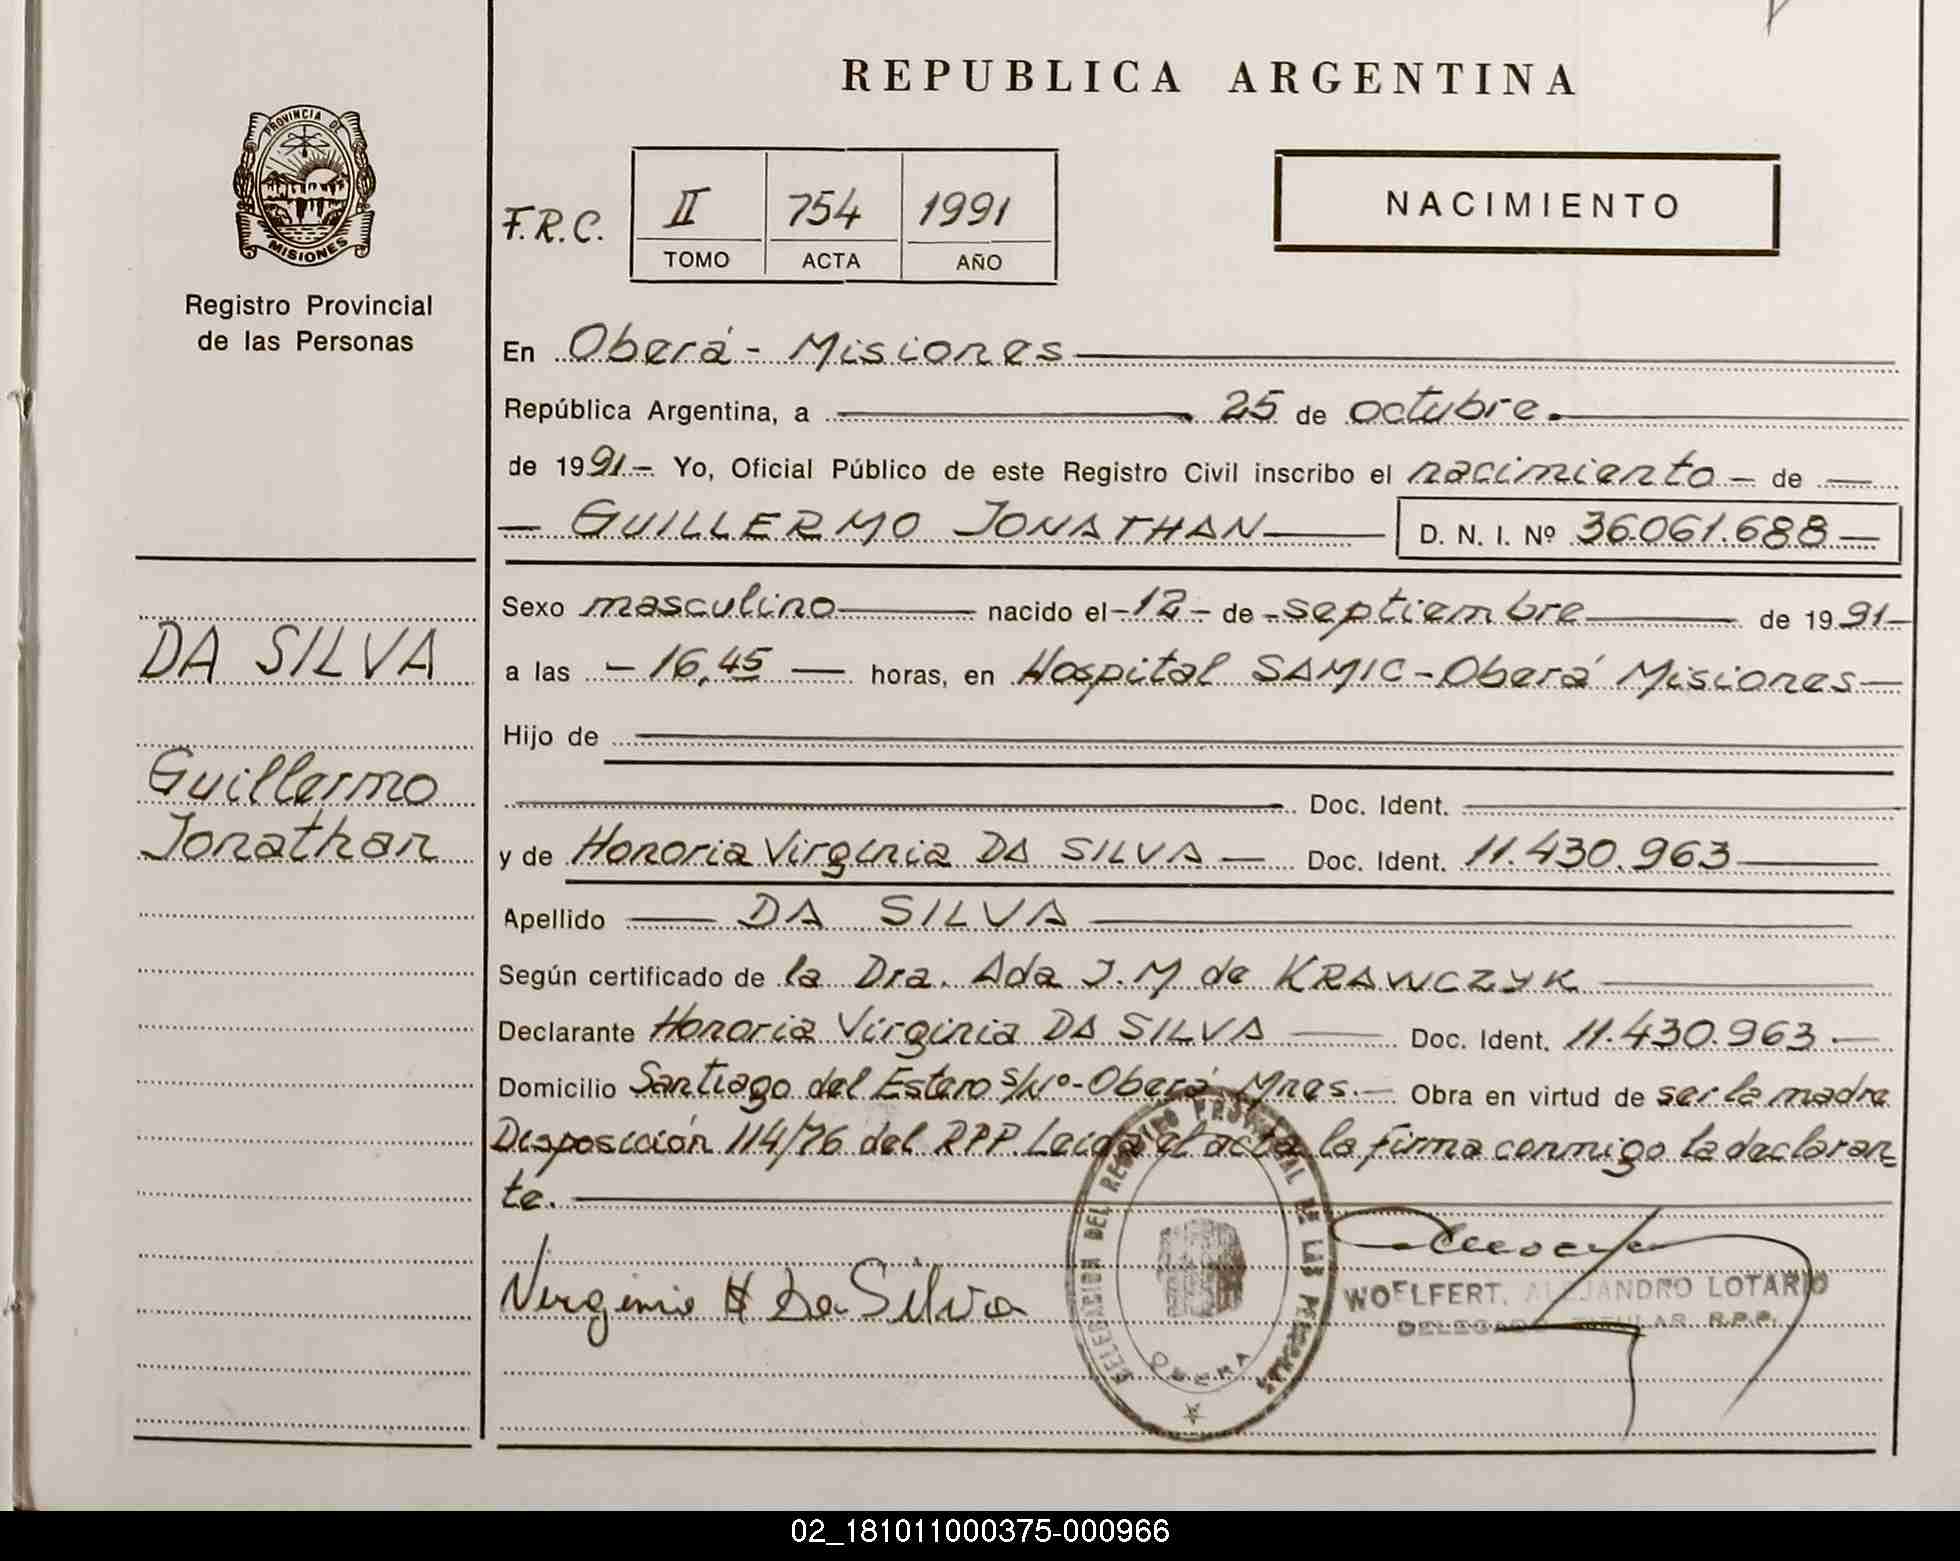 REPUBLICA ARGENTINA
PROVINCIA DE
MISIONES
Registro Provincial
de las Personas
F.R.C.
II 754 1991
TOMO ACTA AÑO
NACIMIENTO
En Oberá - Misiones
República Argentina, a 25 de octubre.
de 1991.- Yo, Oficial Público de este Registro Civil inscribo el nacimiento - de
GUILLERMO JONATHAN D. N. I. Nº 36.061.688
Sexo masculino nacido el -12- de septiembre de 1991-
a las - 16,45 - horas, en Hospital SAMIC - Oberá Misiones -
Hijo de
Doc. Ident.
y de Honoria Virginia DA SILVA - Doc. Ident. 11.430.963
Apellido DA SILVA
Según certificado de la Dra. Ada J. M de KRAWCZYK
Declarante Honoria Virginia DA SILVA Doc. Ident. 11.430.963.-
Domicilio Santiago del Estero s/Nº - Oberá Mnes.- Obra en virtud de ser la madre
Disposición 114/76 del RPP. Leida el acta la firma conmigo la declaran-
te.
DA SILVA
Guillermo
Jonathan
Virginia H Da Silva
DELEGACION DEL REGISTRO PROVINCIAL DE LAS PERSONAS
OBERA
WOELFERT, ALEJANDRO LOTARIO
DELEGADO TITULAR R.P.P.
02_181011000375-000966